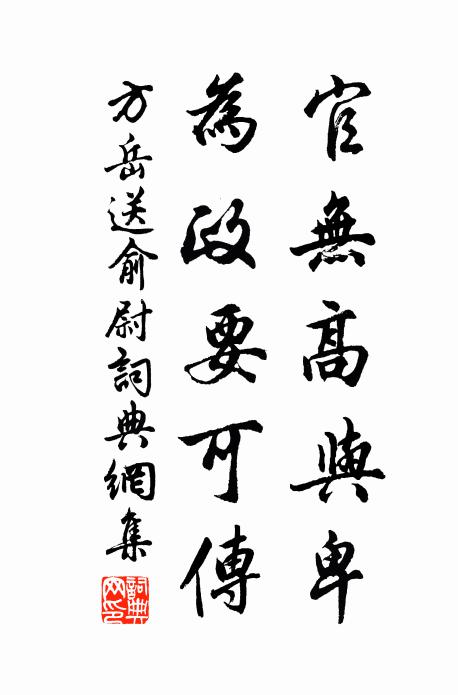 官無高與卑
為政要可傳
方岳送俞尉詞典網集
詞典网印